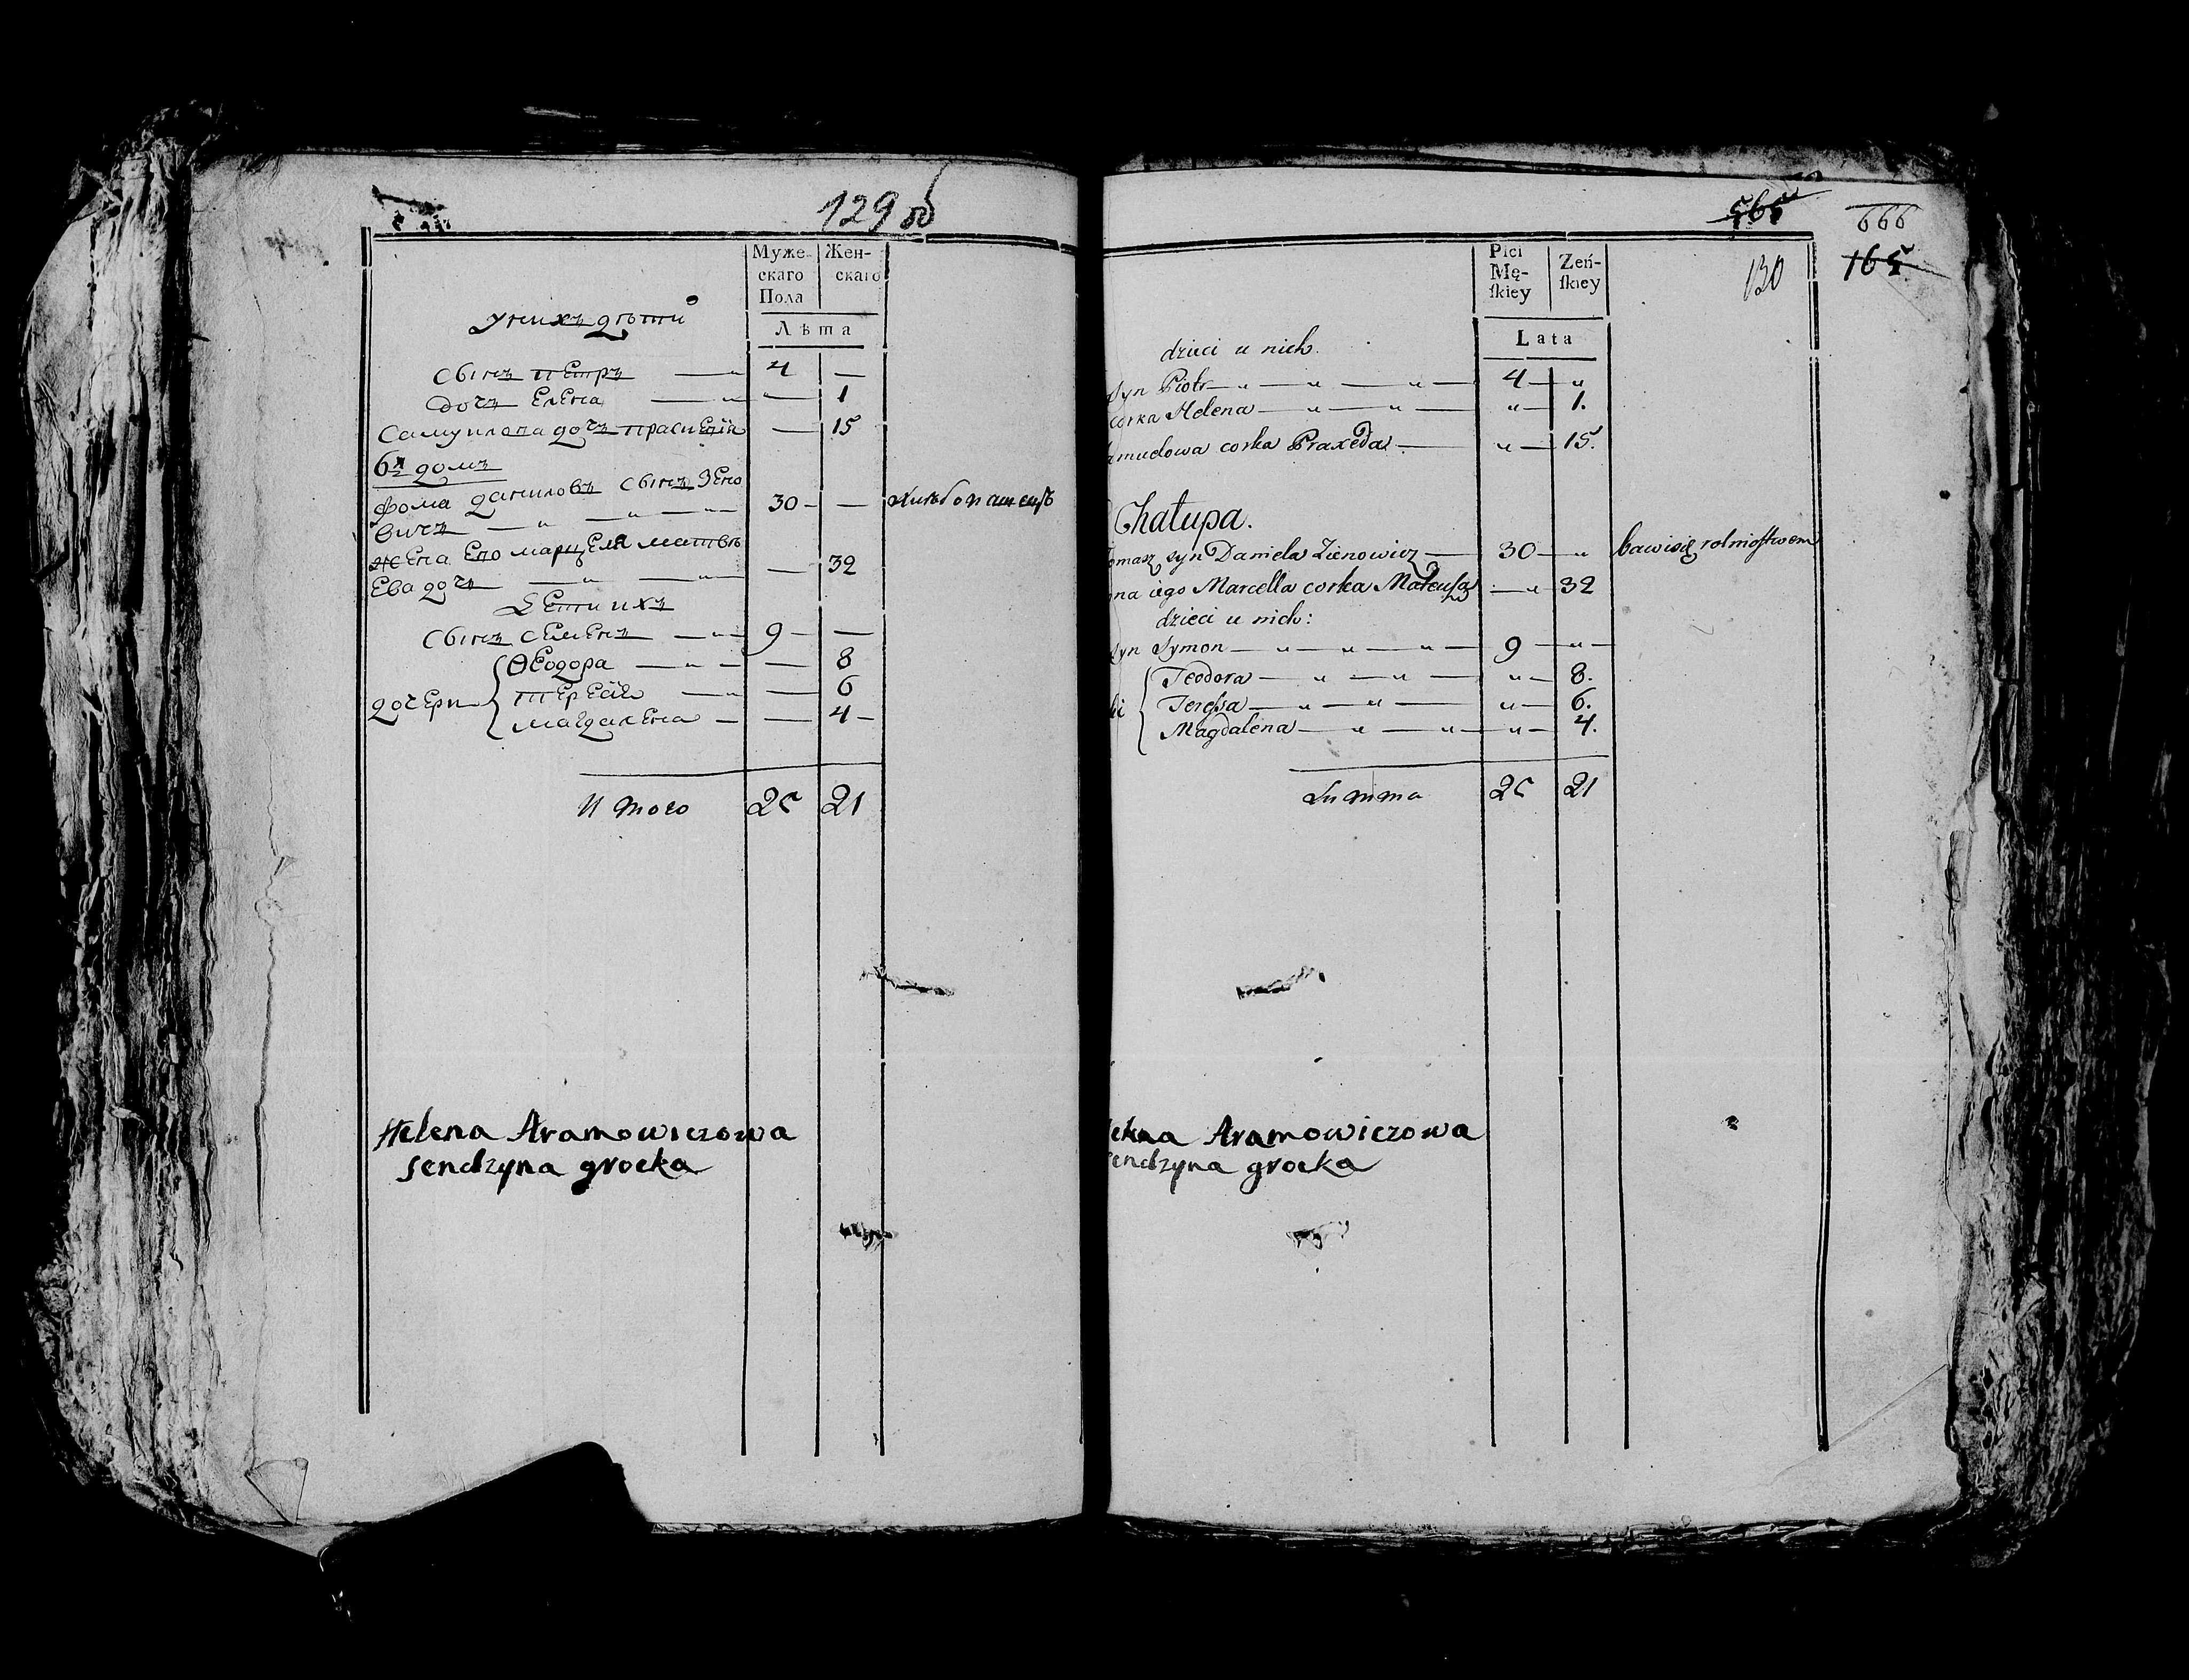 129 об
Муже- Жен-
скаго скаго
Пола
Лѣта
У нихъ дѣти
Сынъ Петръ — 4 —
дочь Елена — — 1
Самуилова дочь — 15
6й домъ
Фома Даниловъ сынъ Зено
вичъ — 30 — хлѣбопашецъ
Жена Его Марцеля Матвѣ
Ева дочь — — 32
Дети ихъ
Сынъ Семенъ — 9 —
Ѳеодора — — 8
дочери Тересія — — 6
Магдалена — — 4
Итого 25 21
Helena Aramowiczowa
Sendzyna grocka
565
666
165
130
Płci Zeń-
Mę- ſkiey
ſkiey
Lata
dzieci u nich.
syn Piotr — 4 — "
corka Helena — " — 1.
amuelowa corka Praxeda — " — 15.
Chałupa.
omasz syn Daniela Zienowicz — 30 — " bawi się rolniſtwem
na iego Marcella corka Mateuſza — " 32
dzieci u nich:
syn Symon — 9 — "
Teodora — " — 8.
ki Tereſsa — " — 6.
Magdalena — " — 4.
Summa 25 21
lena Aramowiczowa
Sendzyna grocka